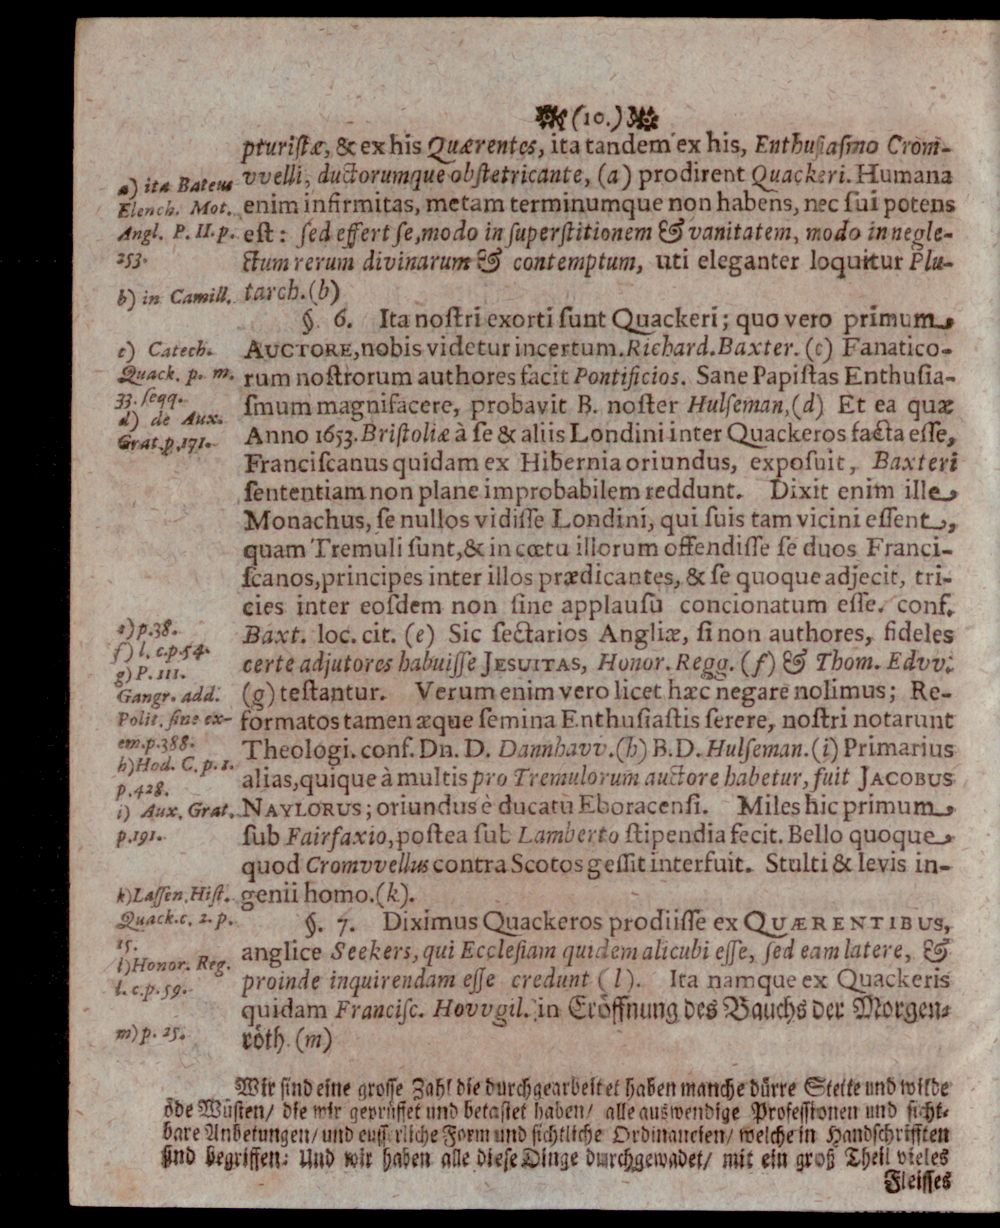 (10.)
pturiſtæ, & ex his Quærentes, ita tandem ex his, Enthuſiaſmo Crom-
vvelli, ductorumque obſtetricante, (a) prodirent Quackeri. Humana
enim infirmitas, metam terminumque non habens, nec ſui potens
eſt: ſed effert ſe, modo in ſuperſtitionem & vanitatem, modo in negle-
ctum rerum divinarum & contemptum, uti eleganter loquitur Plu-
tarch. (b)
a) ita Bateus
Elench. Mot.
Angl. P. II. p.
253.
b) in Camill.
§. 6. Ita noſtri exorti ſunt Quackeri; quo vero primum
AUCTORE, nobis videtur incertum. Richard. Baxter. (c) Fanatico-
rum noſtrorum authores facit Pontificios. Sane Papiſtas Enthuſia-
ſmum magnifacere, probavit B. noſter Hulſeman, (d) Et ea quæ
Anno 1653. Briſtoliæ à ſe & aliis Londini inter Quackeros facta eſſe,
Franciſcanus quidam ex Hibernia oriundus, expoſuit, Baxteri
ſententiam non plane improbabilem reddunt. Dixit enim ille
Monachus, ſe nullos vidiſſe Londini, qui ſuis tam vicini eſſent,
quam Tremuli ſunt, & in cœtu illorum offendiſſe ſe duos Franci-
ſcanos, principes inter illos prædicantes, & ſe quoque adjecit, tri-
cies inter eoſdem non ſine applauſu concionatum eſſe. conf.
Baxt. loc. cit. (e) Sic ſectarios Angliæ, ſi non authores, fideles
certe adjutores habuiſſe JESUITAS, Honor. Regg. (f) & Thom. Edvv.
(g) teſtantur. Verum enim vero licet hæc negare nolimus; Re-
formatos tamen æque ſemina Enthuſiaſtis ſerere, noſtri notarunt
Theologi. conf. Dn. D. Dannhavv. (h) B. D. Hulſeman. (i) Primarius
alias, quique à multis pro Tremulorum auctore habetur, fuit JACOBUS
NAYLORUS; oriundus è ducatu Eboracenſi. Miles hic primum
ſub Fairfaxio, poſtea ſub Lamberto ſtipendia fecit. Bello quoque
quod Cromvvellus contra Scotos geſſit interfuit. Stulti & levis in-
genii homo. (k).
c) Catech.
Quack. p. m.
33. ſeqq.
d) de Aux.
Grat. p. 171.
e) p. 38.
f) l. c. p. 54.
g) P. III.
Gangr. add.
Polit. ſine ex-
em. p. 388.
h) Hod. C. p. 1.
p. 428.
i) Aux. Grat.
p. 191.
k) Laſſen. Hiſt.
Quack. c. 2. p.
15.
§. 7. Diximus Quackeros prodiiſſe ex QUÆRENTIBUS,
anglice Seekers, qui Eccleſiam quidem alicubi eſſe, ſed eam latere, &
proinde inquirendam eſſe credunt (l). Ita namque ex Quackeris
quidam Franciſc. Hovvgil. in Eröffnung des Bauchs der Morgen-
röth. (m)
l) Honor. Reg.
l. c. p. 59.
m) p. 25.
Wir ſind eine groſſe Zahl die durchgearbeitet haben manche dürre Stette und wilde
öde Wüſten/ die wir geprüffet und betaſtet haben/ alle auswendige Profeſſionen und ſicht-
bare Anbetungen/ und euſſerliche Form und ſichtliche Ordinancien/ welche in Handſchrifften
ſind begriffen: Und wir haben alle dieſe Dinge durchgewadet/ mit ein groß Theil vieles
Fleiſſes